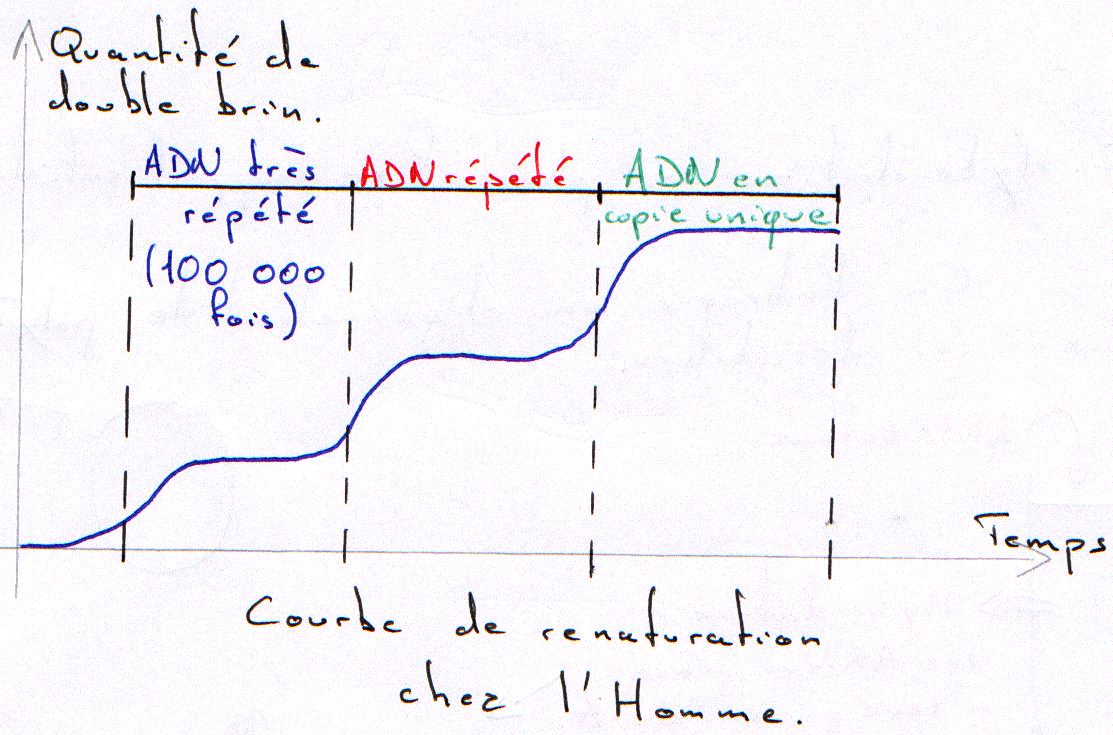 Quantité de
double brin.
ADN très
répété
(100 000
fois)
ADN répété
ADN en
copie unique
Temps
Courbe de renaturation
chez l'Homme.